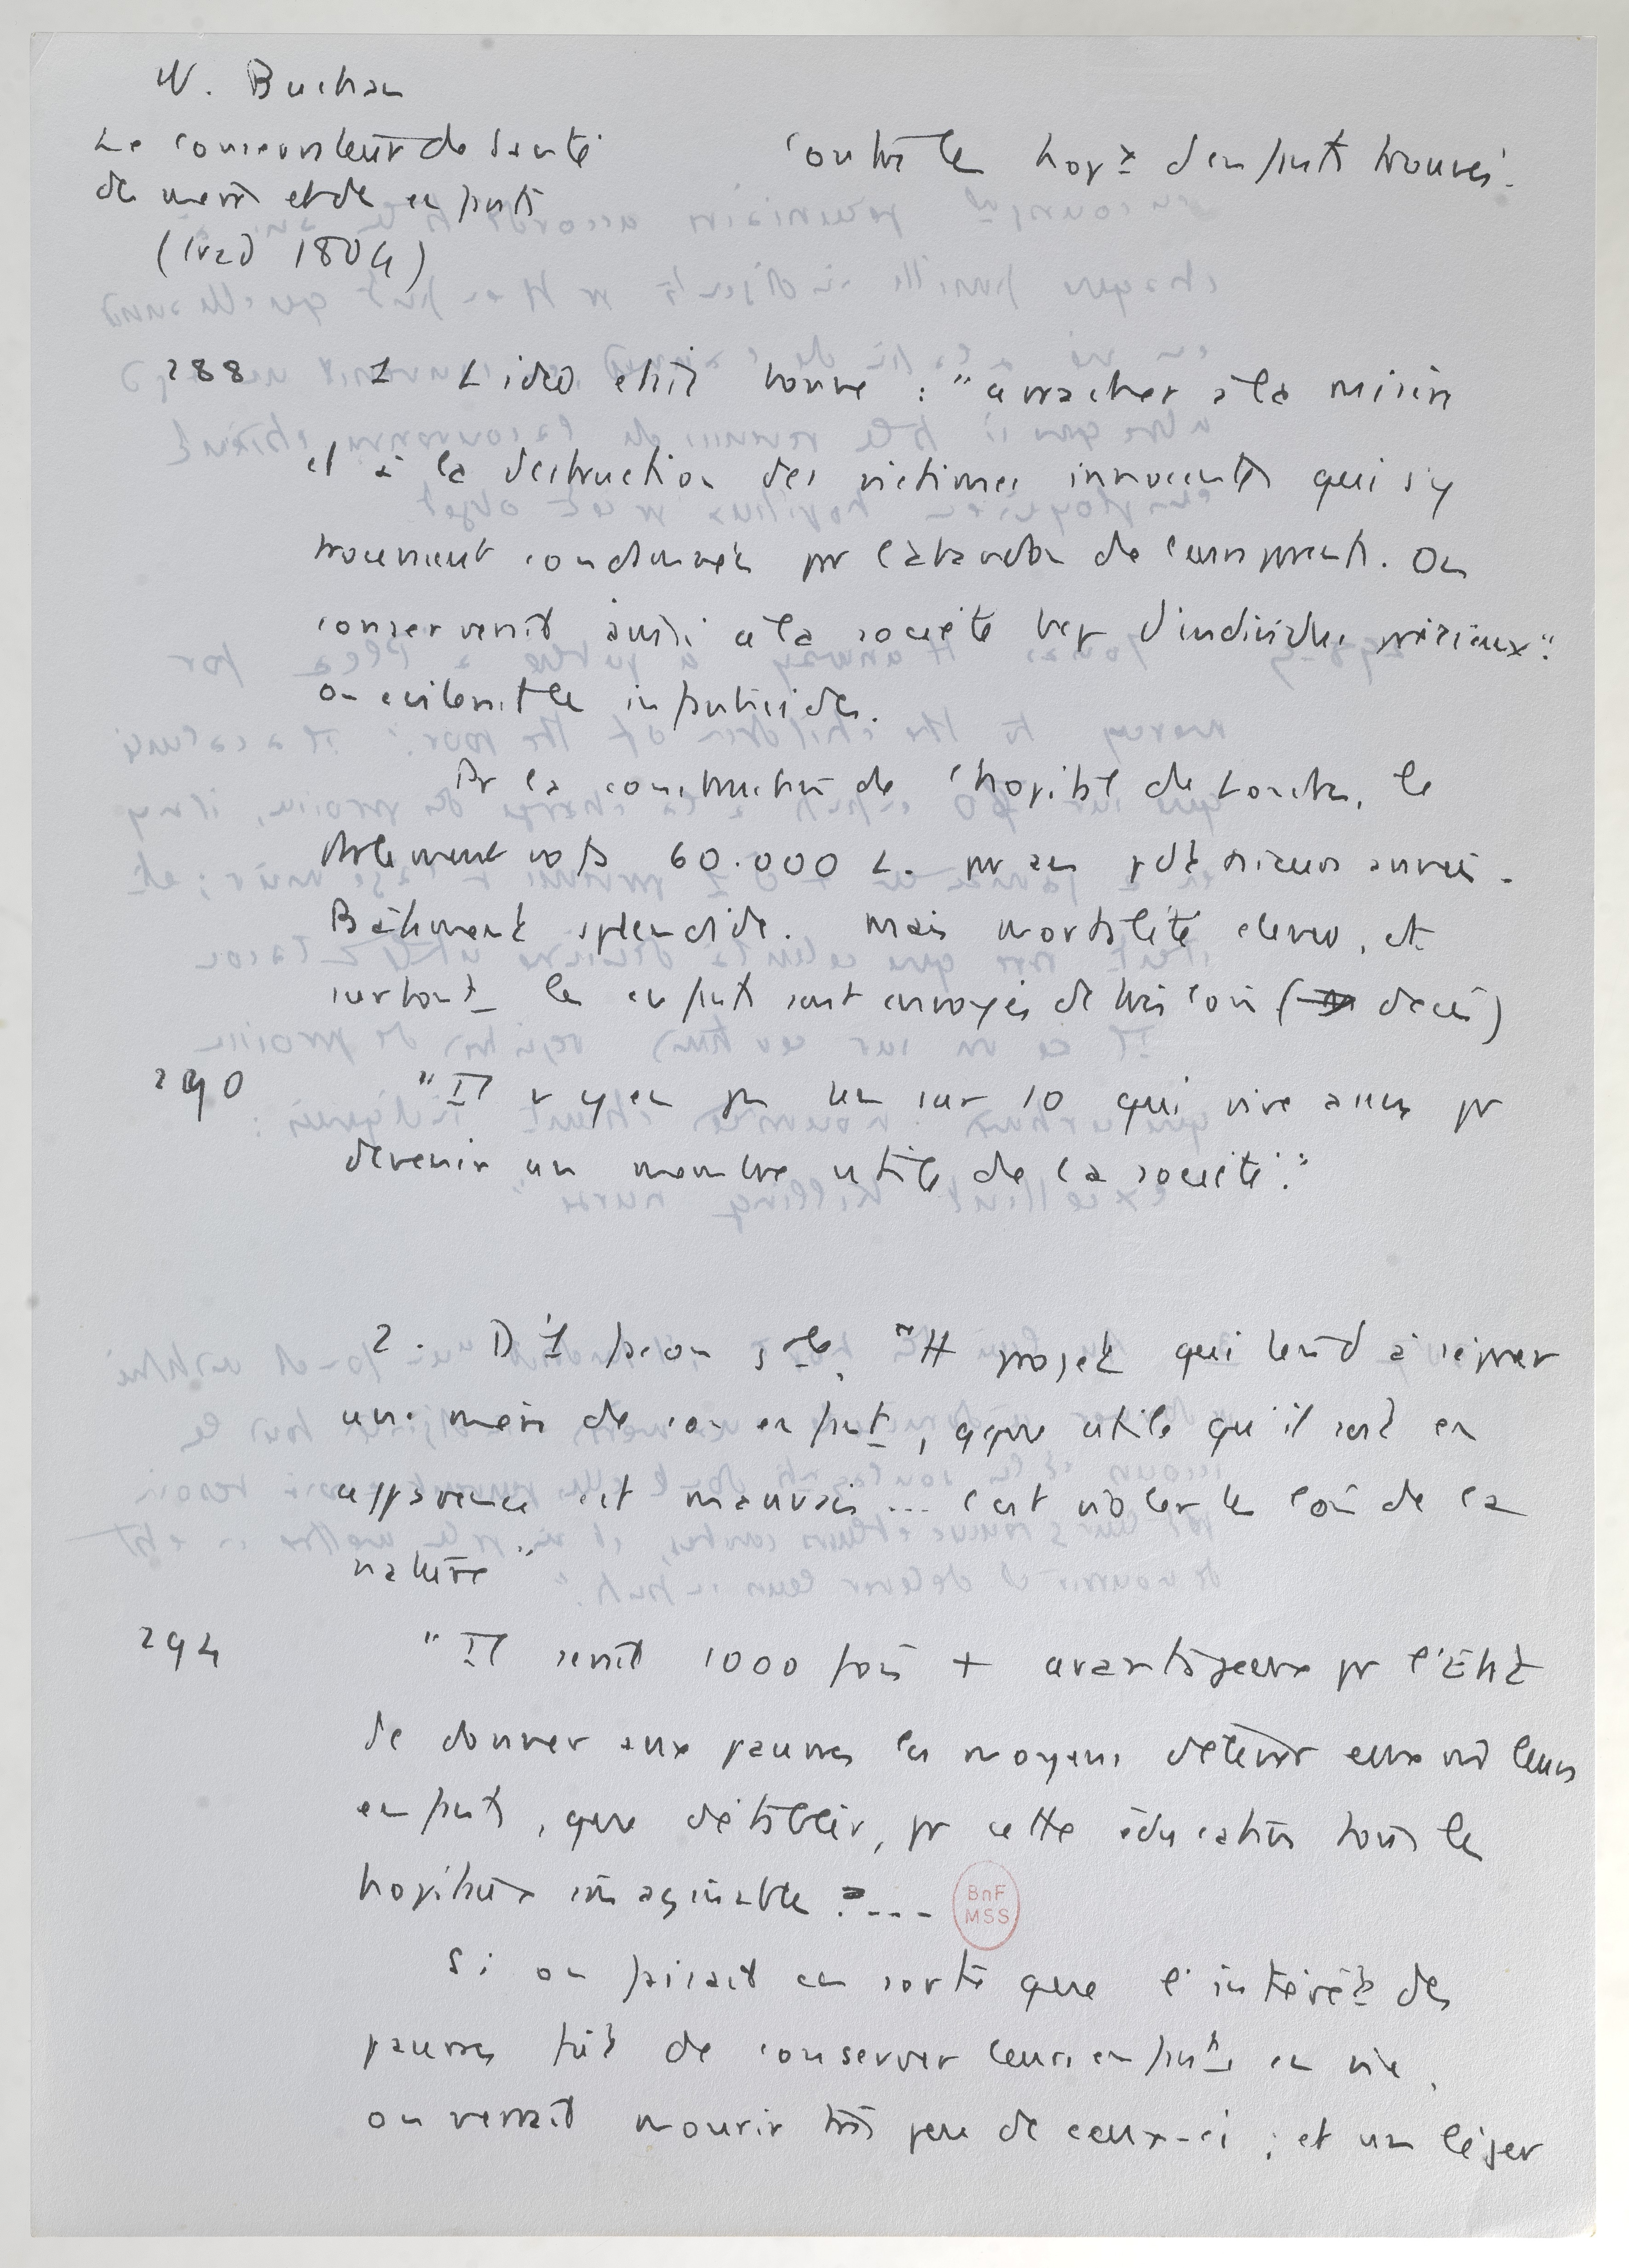 W. Buchan
Le conservateur de santé
des mères et des enfants
(trad 1804)
Contre les hopx d'enfants trouvés.
288 1 L'idée était bonne : "arracher à la misère
et à la destruction des victimes innocentes qui s'y
trouvaient condamnées pr l'abandon de leurs parents. On
conserverait aussi à la société bcp d'individus précieux".
On éviterait les infanticides.
Pr la construction de l'hopital de Londres, le
Parlement vota 60.000 L. pr an pdt plusieurs années.
Bâtiment splendide. Mais mortalité élevée, et
surtout les enfants sont envoyés de très loin ( décès)
290 "Il n'y en a pas un sur 10 qui vive assez pr
devenir un membre utile de la société".
2. D'1 façon gale, "tt projet qui tend à séparer
une mère de son enfant, qque utile qu'il soit en
apparence est mauvais... c'est violer les lois de la
nature"
294 "Il serait 1000 fois + avantageux pr l'État
de donner aux pauvres les moyens d'élever eux mês leurs
enfants, que d'établir, pr cette éducation tous les
hopitaux imaginables ....
BnF
MSS
Si on faisait en sorte que l'intérêt des
pauvres fût de conserver leurs enfants en vie,
on verrait mourir très peu de ceux-ci ; et un léger